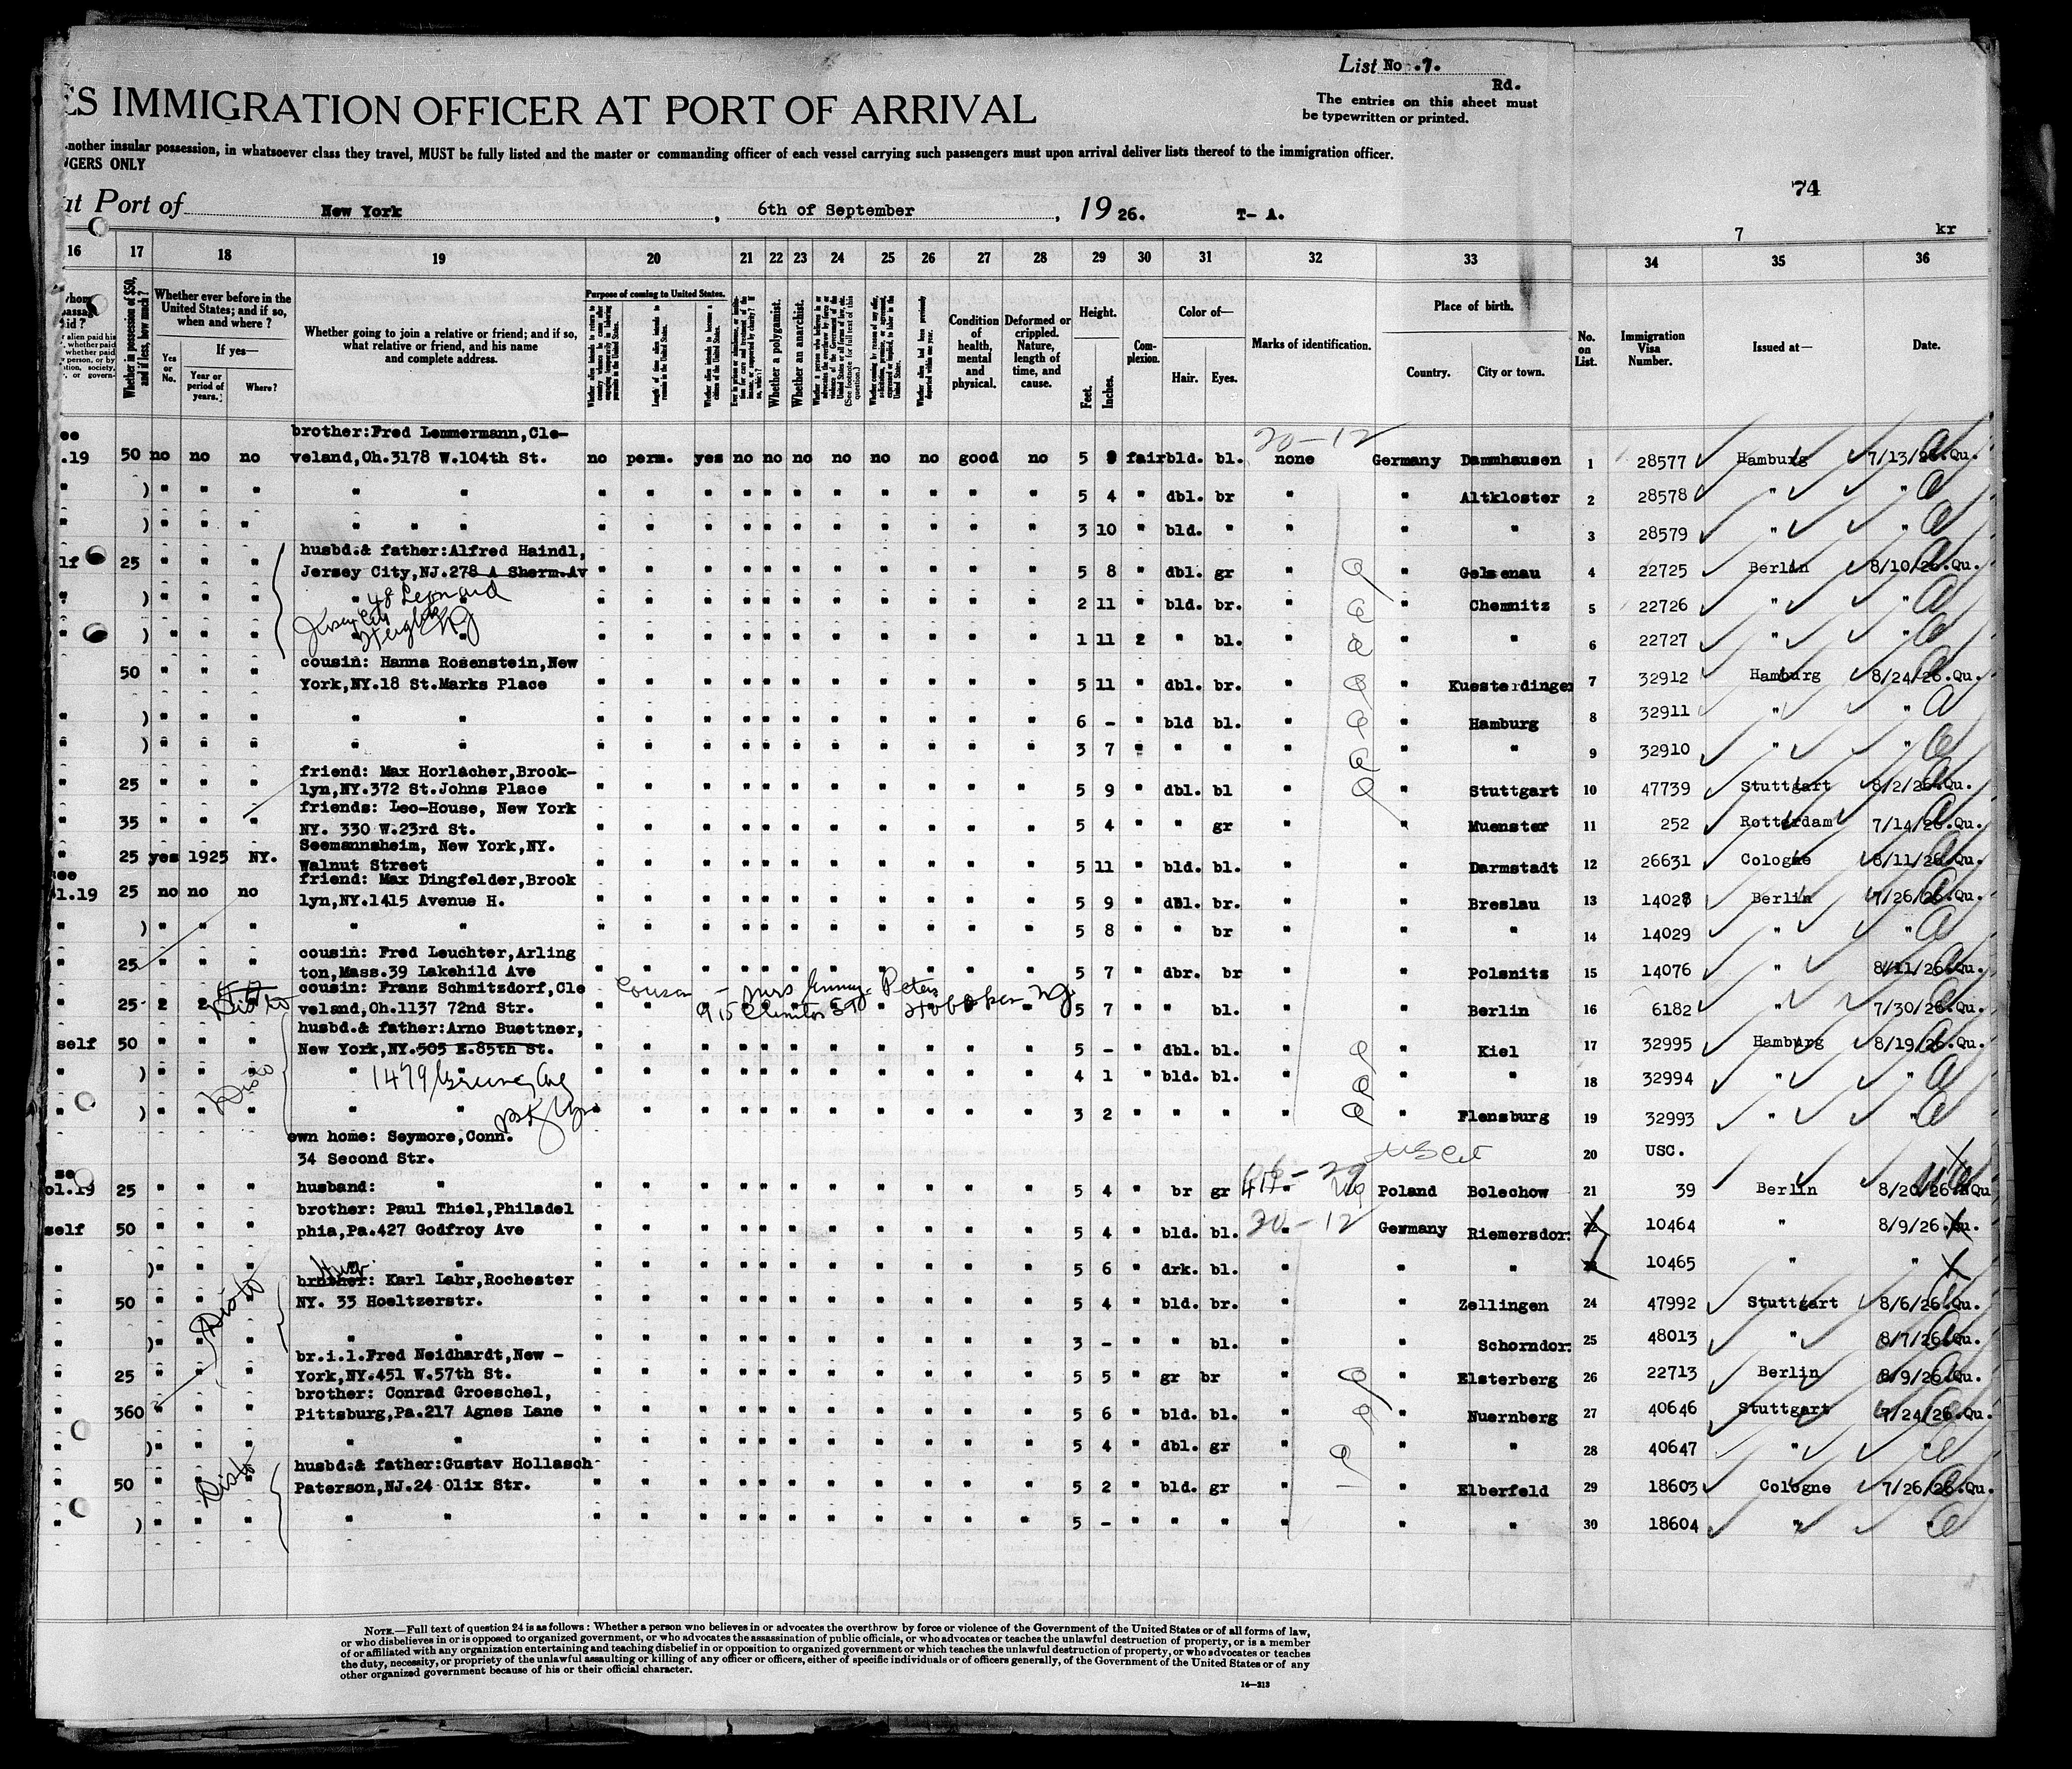 List No. 7.
Rd.
ES IMMIGRATION OFFICER AT PORT OF ARRIVAL
The entries on this sheet must
be typewritten or printed.
another insular possession, in whatsoever class they travel, MUST be fully listed and the master or commanding officer of each vessel carrying such passengers must upon arrival deliver lists thereof to the immigration officer.
NGERS ONLY
74
at Port of New York, 6th of September, 19 26. T- A.
7 kr
16 17 18 19 20 21 22 23 24 25 26 27 28 29 30 31 32 33 34 35 36
Whether in possession of $50, and if less, how much?
Whether ever before in the United States; and if so, when and where?
If yes—
Yes or No.
Year or period of years.
Where?
Whether going to join a relative or friend; and if so, what relative or friend, and his name and complete address.
Purpose of coming to United States.
Length of time alien intends to remain in the United States.
Whether a polygamist.
Whether an anarchist.
Condition of health, mental and physical.
Deformed or crippled. Nature, length of time, and cause.
Height.
Feet. Inches.
Complexion.
Color of—
Hair. Eyes.
Marks of identification.
Place of birth.
Country. City or town.
No. on List.
Immigration Visa Number.
Issued at—
Date.
brother:Fred Lemmermann,Cle-
.19 50 no no no veland,Oh.3178 W.104th St. no perm. yes no no no no no no good no 5 9 fair bld. bl. none Germany Dammhausen 1 28577 Hamburg 7/13/26.Qu.
20-12
) " " " " " " " " " " " " " " " " " 5 4 " dbl. br " " Altkloster 2 28578 " "
) " " " " " " " " " " " " " " " " " 3 10 " bld. " " " " 3 28579 " "
husbd.& father:Alfred Haindl,
lf 25 " " " Jersey City,NJ.278 A Sherm.Av " " " " " " " " " " " 5 8 " dbl. gr " " Gelenau 4 22725 Berlin 8/10/26.Qu.
48 Leonard
) " " " " " " " " " " " " " " 2 11 " bld. br. " " Chemnitz 5 22726 " "
Jersey City
Heights NJ
) " " " " " " " " " " " " " " 1 11 2 " bl. " " " 6 22727 " "
cousin: Hanna Rosenstein,New
50 " " " York,NY.18 St.Marks Place " " " " " " " " " " " 5 11 " dbl. br. " " Kuesterdingen 7 32912 Hamburg 8/24/26.Qu.
) " " " " " " " " " " " " " " " " 6 - " bld bl. " " Hamburg 8 32911 " "
) " " " " " " " " " " " " " " " " 3 7 " " " " " " 9 32910 " "
friend: Max Horlacher,Brook-
25 " " " lyn,NY.372 St.Johns Place " " " " " " " " " " " 5 9 " dbl. bl " " Stuttgart 10 47739 Stuttgart 8/2/26.Qu.
friends: Leo-House, New York
35 " " " NY. 330 W.23rd St. " " " " " " " " " " " 5 4 " " gr " " Muenster 11 252 Rotterdam 7/14/26.Qu.
Seemannsheim, New York,NY.
25 yes 1925 NY. Walnut Street " " " " " " " " " " " 5 11 " bld. bl. " " Darmstadt 12 26631 Cologne 8/11/26.Qu.
see
friend: Max Dingfelder,Brook
ol.19 25 no no no lyn,NY.1415 Avenue H. " " " " " " " " " " " 5 9 " dbl. br. " " Breslau 13 14028 Berlin 7/26/26.Qu.
) " " " " " " " " " " " " " " " " 5 8 " " br " " " 14 14029 " "
cousin: Fred Leuchter,Arling
25 " " " ton,Mass.39 Lakehild Ave " " " " " " " " " " " 5 7 " dbr. br " " Polsnitz 15 14076 " 8/11/26.Qu.
cousin: Franz Schmitzdorf,Cle
Cousin - Mrs Peters
25 2 2 veland,Oh.1137 72nd Str. " " " " " " " " " " " 5 7 " " bl. " " Berlin 16 6182 " 7/30/26.Qu.
915 Clinton St Hoboken NJ
husbd.& father:Arno Buettner,
self 50 " " " New York,NY.505 E.85th St. " " " " " " " " " " " 5 - " dbl. bl. " " Kiel 17 32995 Hamburg 8/19/26.Qu.
1479 Ave
) " " " " " " " " " " " " " " " 4 1 " bld. bl. " " " 18 32994 " "
) " " " " " " " " " " " " " " " " 3 2 " " " " " Flensburg 19 32993 " "
Bklyn
own home: Seymore,Conn.
34 Second Str. 20 USC.
see
ol.19 25 " " " husband: " " " " " " " " " " " " 5 4 " br gr " Poland Bolechow 21 39 Berlin 8/20/26.NQu
brother: Paul Thiel,Philadel
self 50 " " " phia,Pa.427 Godfroy Ave " " " " " " " " " " " 5 4 " bld. bl. " Germany Riemersdorf 22 10464 " 8/9/26.Qu.
30-12
) " " " " " " " " " " " " " " " 5 6 " drk. bl. " " " 23 10465 " "
brother: Karl Lahr,Rochester
50 " " " NY. 33 Hoeltzerstr. " " " " " " " " " " " 5 4 " bld. br. " " Zellingen 24 47992 Stuttgart 8/6/26.Qu.
) " " " " " " " " " " " " " " " " 3 - " " bl. " " Schorndorf 25 48013 " 8/7/26.Qu.
br.i.l.Fred Neidhardt,New -
25 " " " York,NY.451 W.57th St. " " " " " " " " " " " 5 5 " gr br " " Elsterberg 26 22713 Berlin 8/9/26.Qu.
brother: Conrad Groeschel,
360 " " " Pittsburg,Pa.217 Agnes Lane " " " " " " " " " " " 5 6 " bld. bl. " " Nuernberg 27 40646 Stuttgart 7/24/26.Qu.
) " " " " " " " " " " " " " " " " 5 4 " dbl. gr " " " 28 40647 " "
husbd.& father:Gustav Hollasch
50 " " " Paterson,NJ.24 Olix Str. " " " " " " " " " " " 5 2 " bld. gr " " Elberfeld 29 18603 Cologne 7/26/26.Qu.
) " " " " " " " " " " " " " " " " 5 - " " " " " " 30 18604 " "
NOTE.—Full text of question 24 is as follows: Whether a person who believes in or advocates the overthrow by force or violence of the Government of the United States or of all forms of law,
or who disbelieves in or is opposed to organized government, or who advocates the assassination of public officials, or who advocates or teaches the unlawful destruction of property, or is a member
of or affiliated with any organization entertaining and teaching disbelief in or opposition to organized government or which teaches the unlawful destruction of property, or who advocates or teaches
the duty, necessity, or propriety of the unlawful assaulting or killing of any officer or officers, either of specific individuals or of officers generally, of the Government of the United States or of any
other organized government because of his or their official character.
14—213